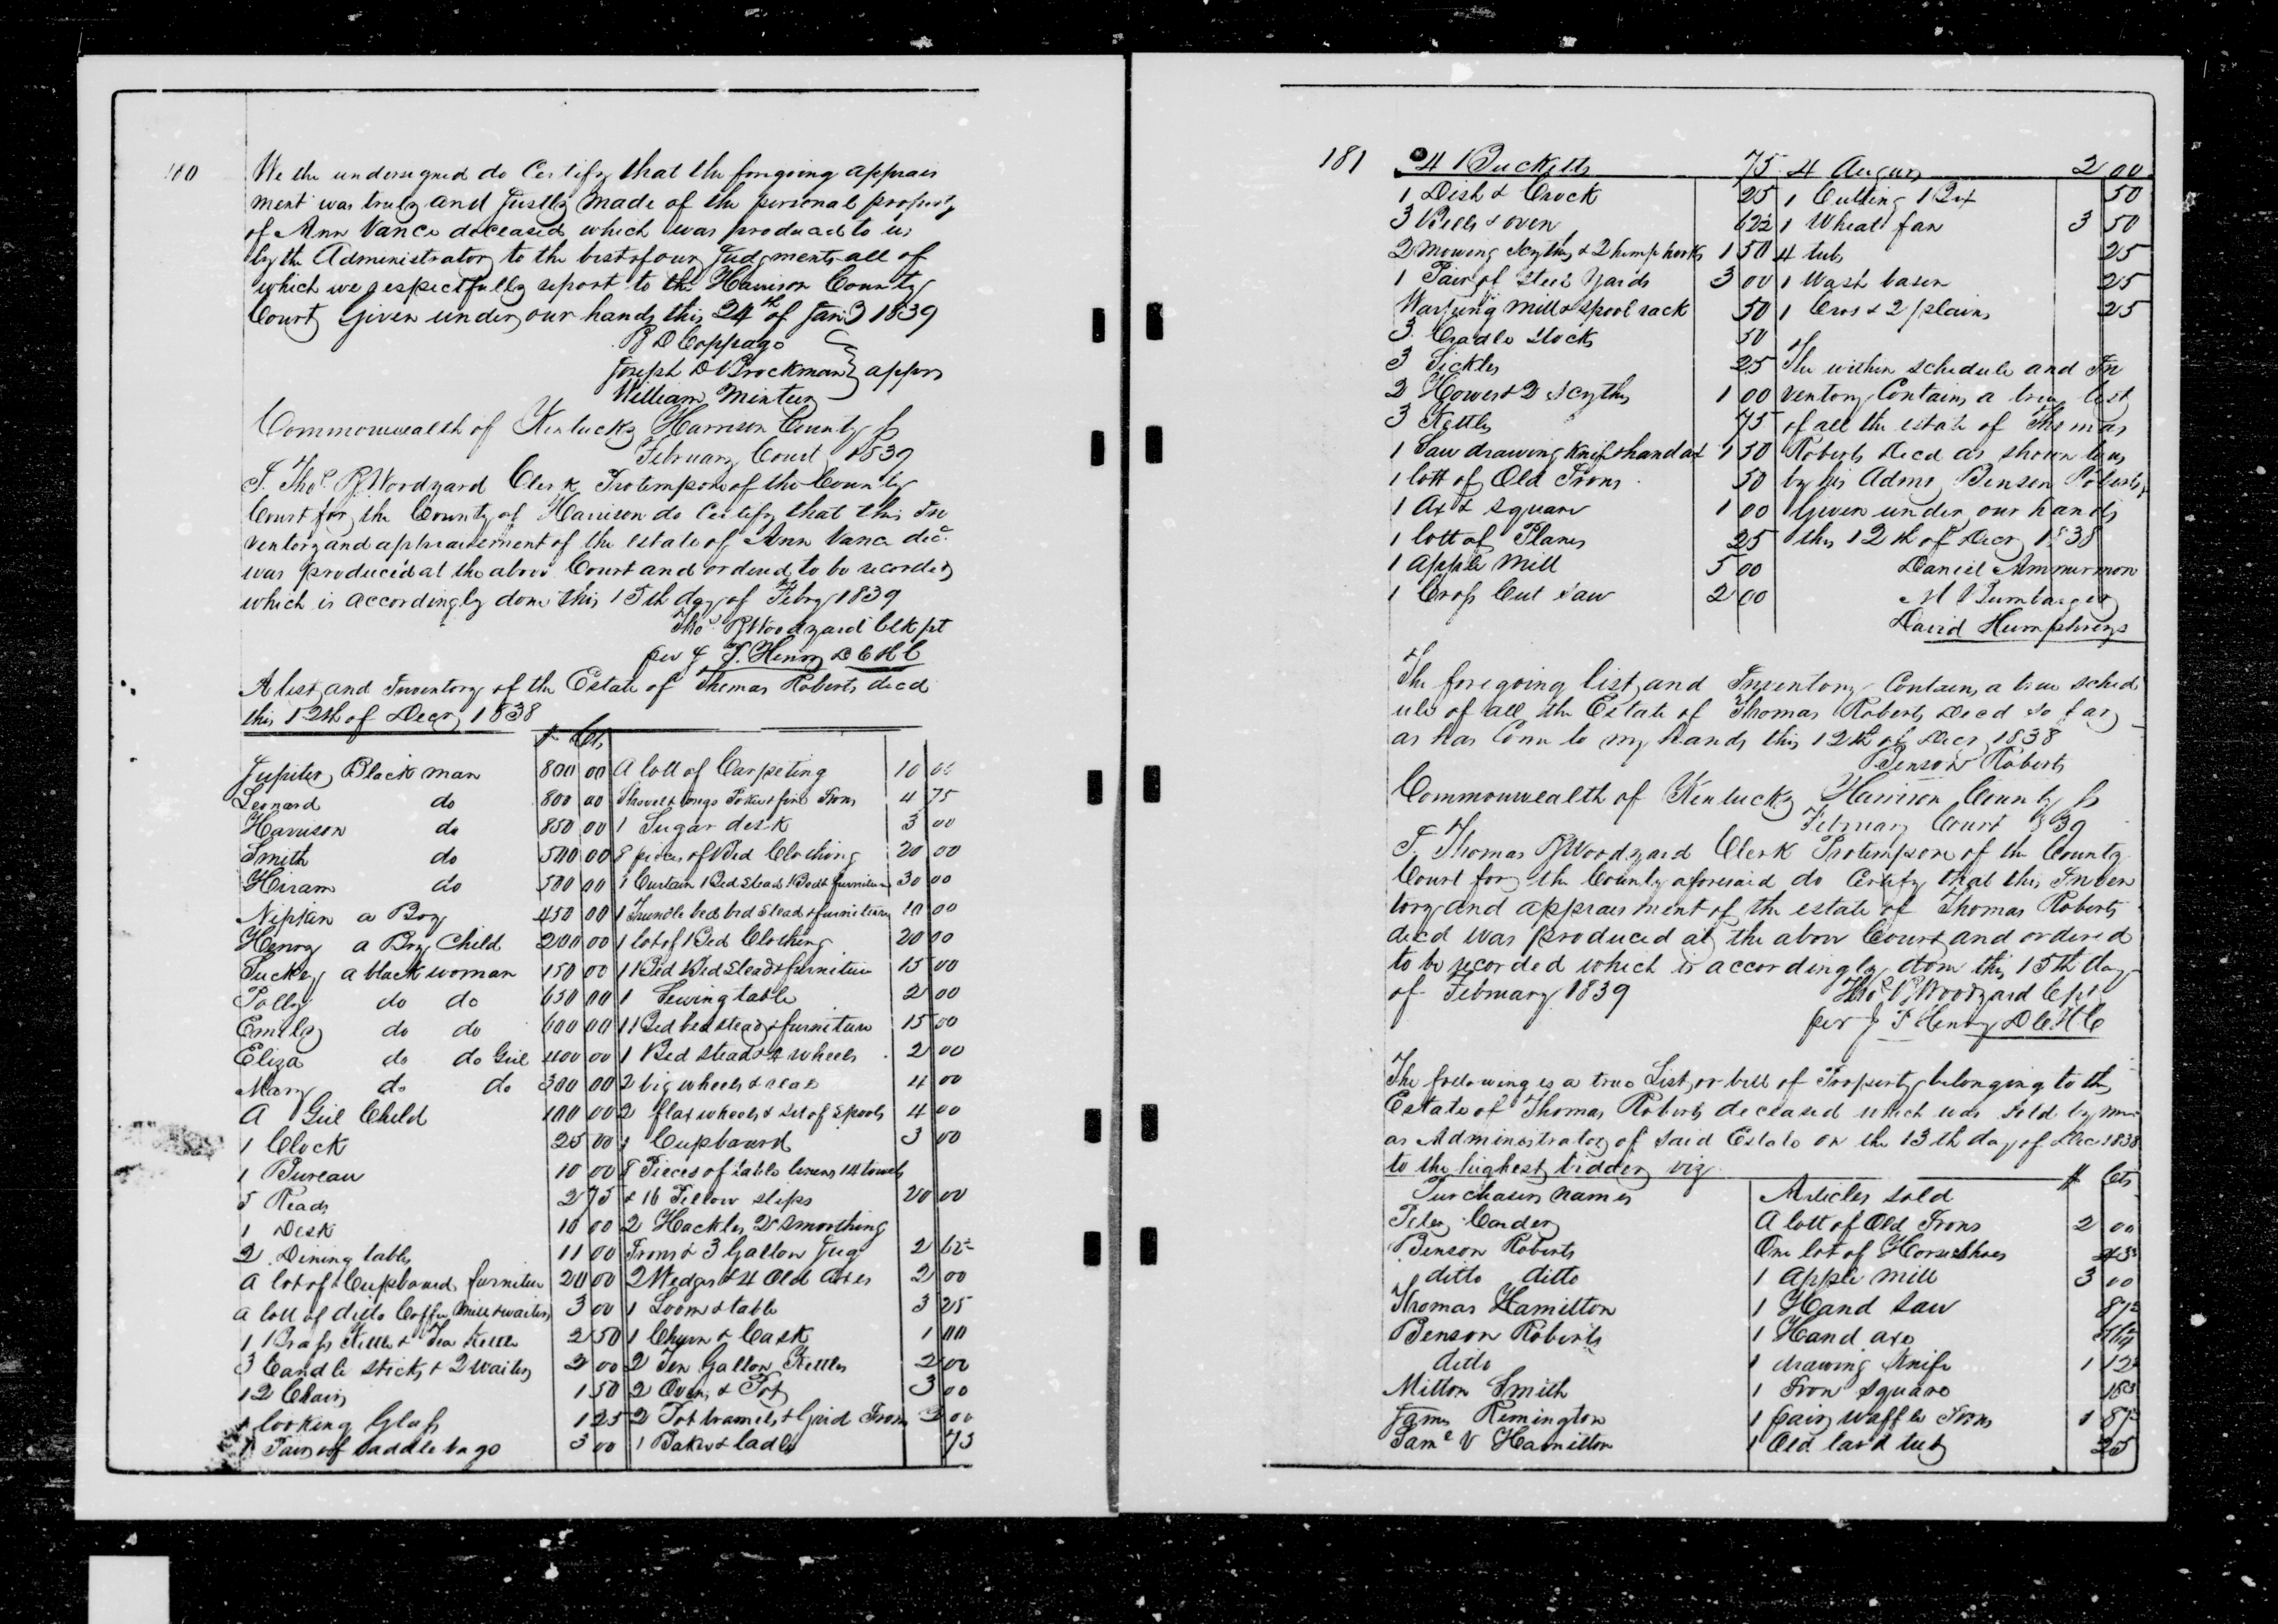 180
We the undersigned do Certify that the foregoing apprais
ment was truly and Justly made of the personal property
of Ann Vance deceased which was produced to us
by the Administrator to the best of our Judgments all of
which we respectfully report to the Harrison County
Court Given under our hands this 24th of Jany 1839
B D Coppage
Joseph D Brockman } apprs
William Minteer
Commonwealth of Kentucky Harrison County ss
February Court 1839
I Thos. R Woodyard Clerk Protempore of the County
Court for the County of Harrison do Certify that this In
ventory and appraisement of the estate of Ann Vance decd.
was produced at the above Court and ordered to be recorded
which is accordingly done this 15th day of Febry 1839
Thos. R Woodyard Clk pt
per J. T. Henry D C H C
A list and Inventory of the Estate of Thomas Roberts decd
this 12th of Decr 1838
$ Cts
Jupiter Black man 800 00 A lott of Carpeting 10 00
Leonard do 800 00 Shovel tongs Poker & fire Irons 4 75
Harrison do 850 00 1 Sugar desk 3 00
Smith do 500 00 8 pieces of Bed Clothing 20 00
Hiram do 500 00 1 Curtain Bed Stead Bed & furniture 30 00
a Boy 450 00 1 Trundle bed bed Stead & furniture 10 00
Henry a Boy Child 200 00 1 lot of Bed Clothing 20 00
Suckey a black woman 150 00 1 Bed Bed Stead & furniture 15 00
Polly do do 650 00 1 Sewing table 2 00
Emily do do 600 00 1 Bed bed stead & furniture 15 00
Eliza do do Girl 400 00 1 Bed Stead & 4 wheels 2 00
Mary do do 300 00 2 big wheels & real 4 00
A Girl Child 100 00 2 flax wheels & Set of Spools 4 00
1 Clock 25 00 1 Cupboard 3 00
1 Bureau 10 00 8 Pieces of table linens 14 towels
5 Reads 2 75 & 16 Pillow slips 20 00
1 Desk 10 00 2 Hackles 2 Smoothing
2 Dining tables 11 00 Irons & 3 Gallon Jug 2 62½
A lot of Cupboard furniture 20 00 2 Wedges & 4 Old Axes 2 00
A lott of ditto Coffee Mill & waiters 3 00 1 Loom & table 3 25
1 Brass Kettle & Tea Kettle 2 50 1 Churn & Cask 1 00
3 Candle Sticks & 2 Waiters 2 00 2 Ten Gallon Kettles 2 00
12 Chairs 1 50 2 Ovens & Pot 3 00
1 looking Glass 1 25 2 Pot tramels & Grid Iron 3 00
1 Pair of saddle bags 3 00 1 Baker & ladle 75
181
4 Bucketts 75 4 Augurs 2 00
1 Dish & Crock 25 1 Cutting Box 50
3 Bells & oven 62½ 1 Wheat fan 3 50
2 mowing Scythes & 2 hemp hooks 1 50 4 tubs 25
1 Pair of Steel Yards 3 00 1 Wash basen 25
Warping Mill & Spool rack 50 1 Cros & 2 plains 25
3 Cradle Stocks 50
3 Sickles 25 The within schedule and In
2 Howes & 2 Scythes 1 00 ventory Contains a true list
3 Kettles 75 of all the estate of Thomas
1 Saw drawing Knife & hand ax 1 50 Roberts Decd as shown to us
1 lott of Old Irons 50 by his Admr Benson Roberts
1 Ax & Square 1 00 Given under our hands
1 lott of Planes 25 this 12th of Decr 1838
1 Apple Mill 5 00 Daniel Ammerman
1 Cross Cut Saw 2 00 M Rumbarger
David Humphreys
The foregoing list and Inventory Contains a true sched
ule of all the Estate of Thomas Roberts Decd so far
as has Come to my hands this 12th of Decr 1838
Benson Roberts
Commonwealth of Kentucky Harrison County ss
February Court 1839
I Thomas R Woodyard Clerk Protempore of the County
Court for the County aforesaid do Certify that this Inven
tory and appraisment of the estate of Thomas Roberts
decd was produced at the above Court and ordered
to be recorded which is accordingly done this 15th day
of February 1839 Thos R Woodyard C pt
per J T Henry D C H C
The following is a true List or bill of Property belonging to the
Estate of Thomas Roberts deceased which was Sold by me
as Administrator of Said Estate on the 13th day of Dec 1838
to the highest bidder viz $ Cts
Purchasers names Articles Sold
Peter Carder A lott of Old Irons 2 00
Benson Roberts One lot of Horse Shoes
ditto ditto 1 Apple mill 3 00
Thomas Hamilton 1 Hand Saw 87½
Benson Roberts 1 Hand axe
ditto 1 drawing Knife 1 12½
Milton Smith 1 Iron Square
James Remington 1 pair waffle Irons 1 87½
Saml V Hamilton 1 Old lard tub 25